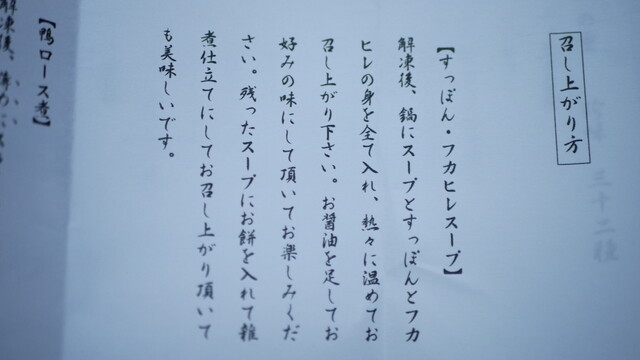 召し上がり方
【すっぽん・フカヒレスープ】
解凍後、鍋にスープとすっぽんとフカ
ヒレの身を全て入れ、熱々に温めてお
召し上がり下さい。お醤油を足してお
好みの味にして頂いてお楽しみくだ
さい。残ったスープにお餅を入れて雑
煮仕立てにしてお召し上がり頂いて
も美味しいです。
【鴨ロース煮】
解凍後、薄めに